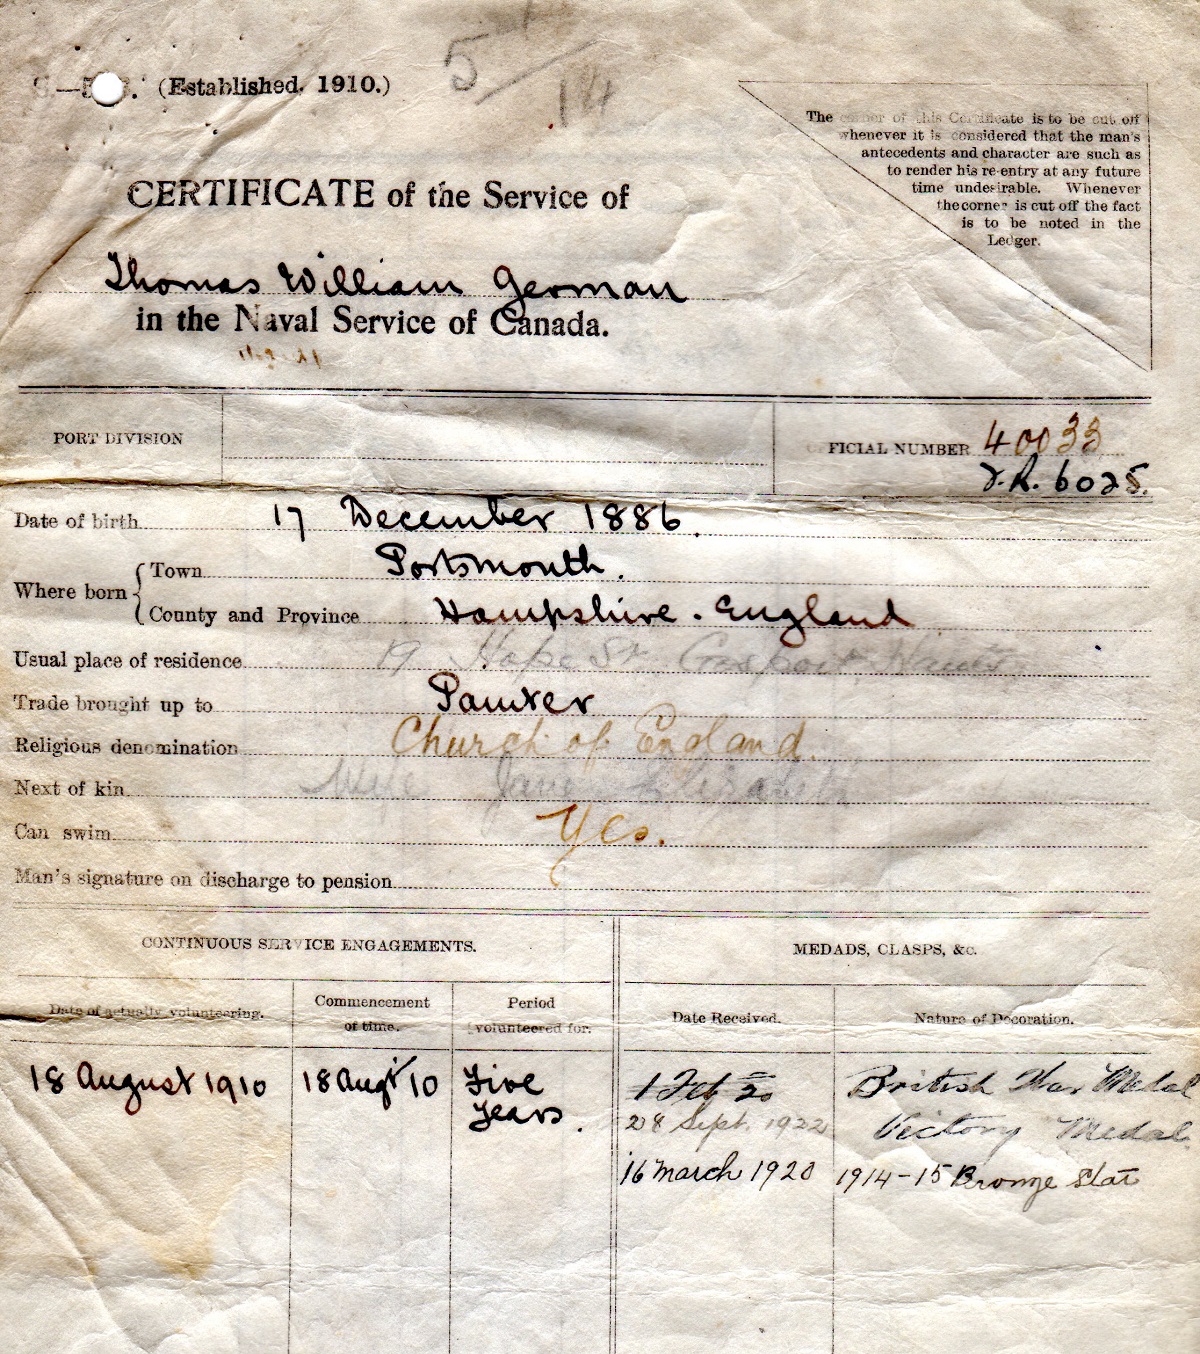 (Established. 1910.)
5/14
The corner of this Certificate is to be cut off
whenever it is considered that the man's
antecedents and character are such as
to render his re-entry at any future
time undesirable. Whenever
the corner is cut off the fact
is to be noted in the
Ledger.
CERTIFICATE of the Service of
Thomas William German
in the Naval Service of Canada.
PORT DIVISION
OFFICIAL NUMBER 40033
6025.
Date of birth 17 December 1886.
Where born
Town Portsmouth.
County and Province Hampshire. England
Usual place of residence 19 Hope St Gosport, Hants
Trade brought up to Painter
Religious denomination Church of England.
Next of kin Wife Jane Elizabeth
Can swim Yes.
Man's signature on discharge to pension
CONTINUOUS SERVICE ENGAGEMENTS.
MEDADS, CLASPS, &c.
Date of actually volunteering.
Commencement
of time.
Period
volunteered for.
Date Received.
Nature of Decoration.
18 August 1910
18 Augt 10
Five
Years.
1 Feb 20
British War Medal
28 Sept. 1922
Victory Medal
16 March 1920
1914-15 Bronze Star